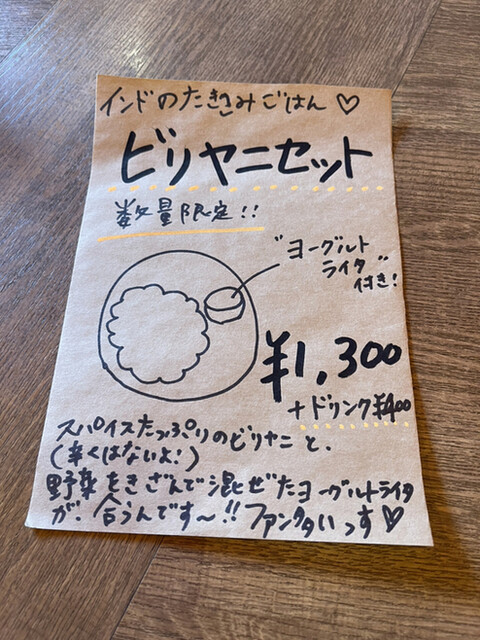 インドのたきこみごはん♡
ビリヤニセット
数量限定!!
"ヨーグルト
ライタ"
付き!
¥1,300
+ドリンク¥400
スパイスたっぷりのビリヤニと、
(辛くはないよ!)
野菜をきざんで混ぜたヨーグルトライタ
が、合うんです〜!!ファンタスティックっす♡